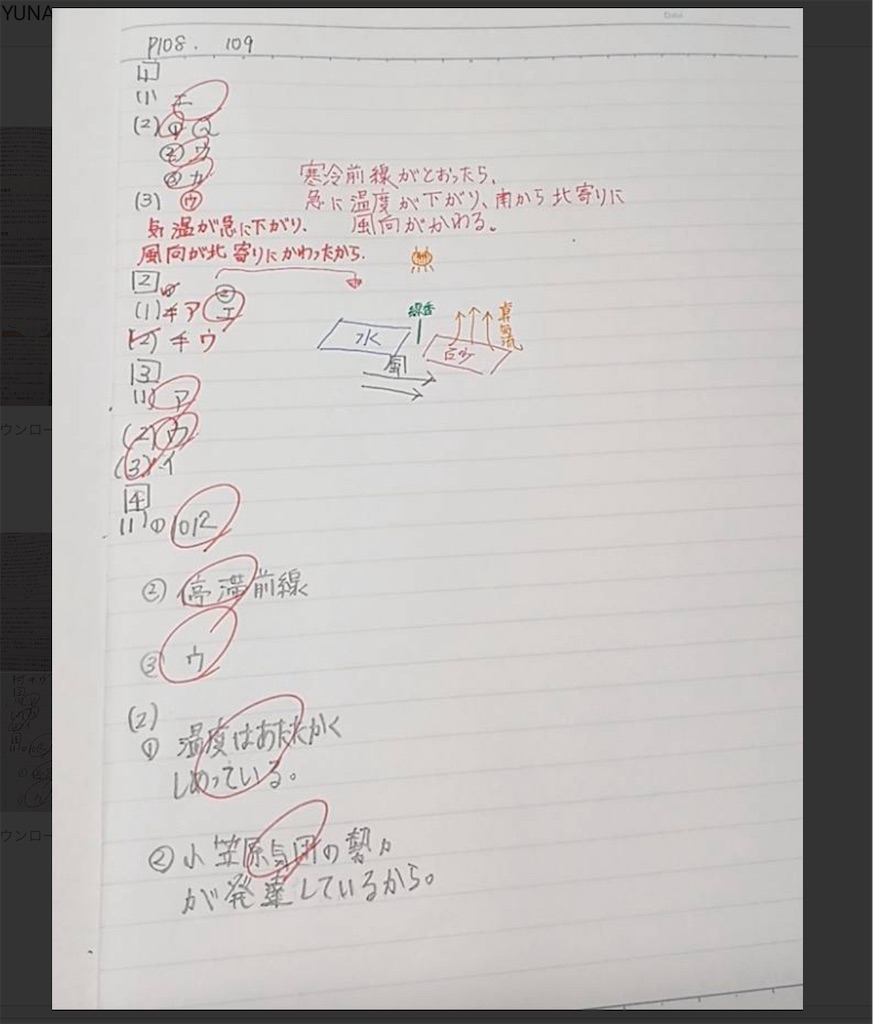 YUNA
Date
P108. 109
1
(1) エ
(2) ① Q
② ウ
③ カ
(3) ウ
寒冷前線がとおったら、
急に温度が下がり、南から北寄りに
風向がかわる。
気温が急に下がり、
風向が北寄りにかわったから.
2
(1) チア エ
(2) チウ
線香
水
風
3
(1) ア
(2) ウ
(3) イ
4
(1) ① 1012
② 停滞前線
③ ウ
(2)
① 温度はあたたかく
しめっている。
② 小笠原気団の勢力
が発達しているから。
ウンロー
ウンロー